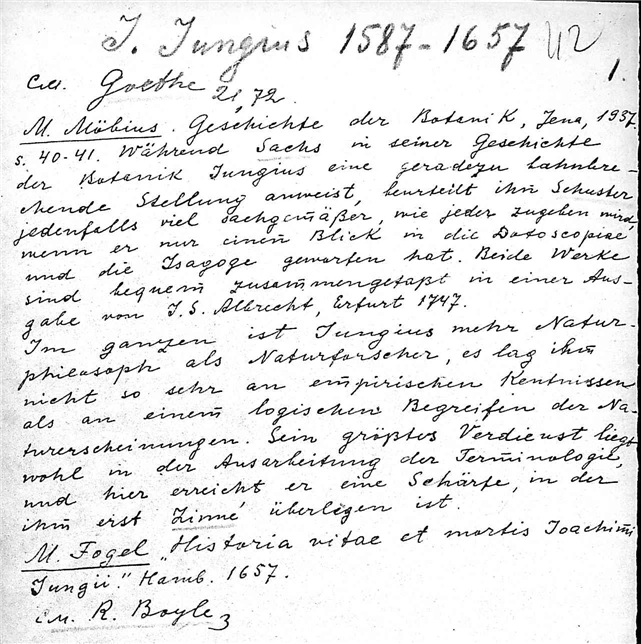 J. Jungius 1587-1657
1.
см. Goethe 21,72.
M. Möbius. Geschichte der Botanik, Jena, 1937
s. 40-41. Während Sachs in seiner Geschichte
der Botanik Jungius eine geradezu bahnbre-
chende Stellung anweist, beurteilt ihn Schuster
jedenfalls viel sachgemäßer, wie jeder zugeben wird,
wenn er nur einen Blick in die Doxoscopiae
und die Isagoge geworfen hat. Beide Werke
sind bequem zusammengefaßt in einer Aus-
gabe von J.S. Albrecht, Erfurt 1747.
Im ganzen ist Jungius mehr Natur-
philosoph als Naturforscher, es lag ihm
nicht so sehr an empirischen Kentnissen
als an einem logischen Begreifen der Na-
turerscheinungen. Sein größtes Verdienst liegt
wohl in der Ausarbeitung der Terminologie,
und hier erreicht er eine Schärfe, in der
ihm erst Linné überlegen ist.
M. Fogel „Historia vitae et mortis Joachimi
Jungii." Hamb. 1657.
см. R. Boyle 3